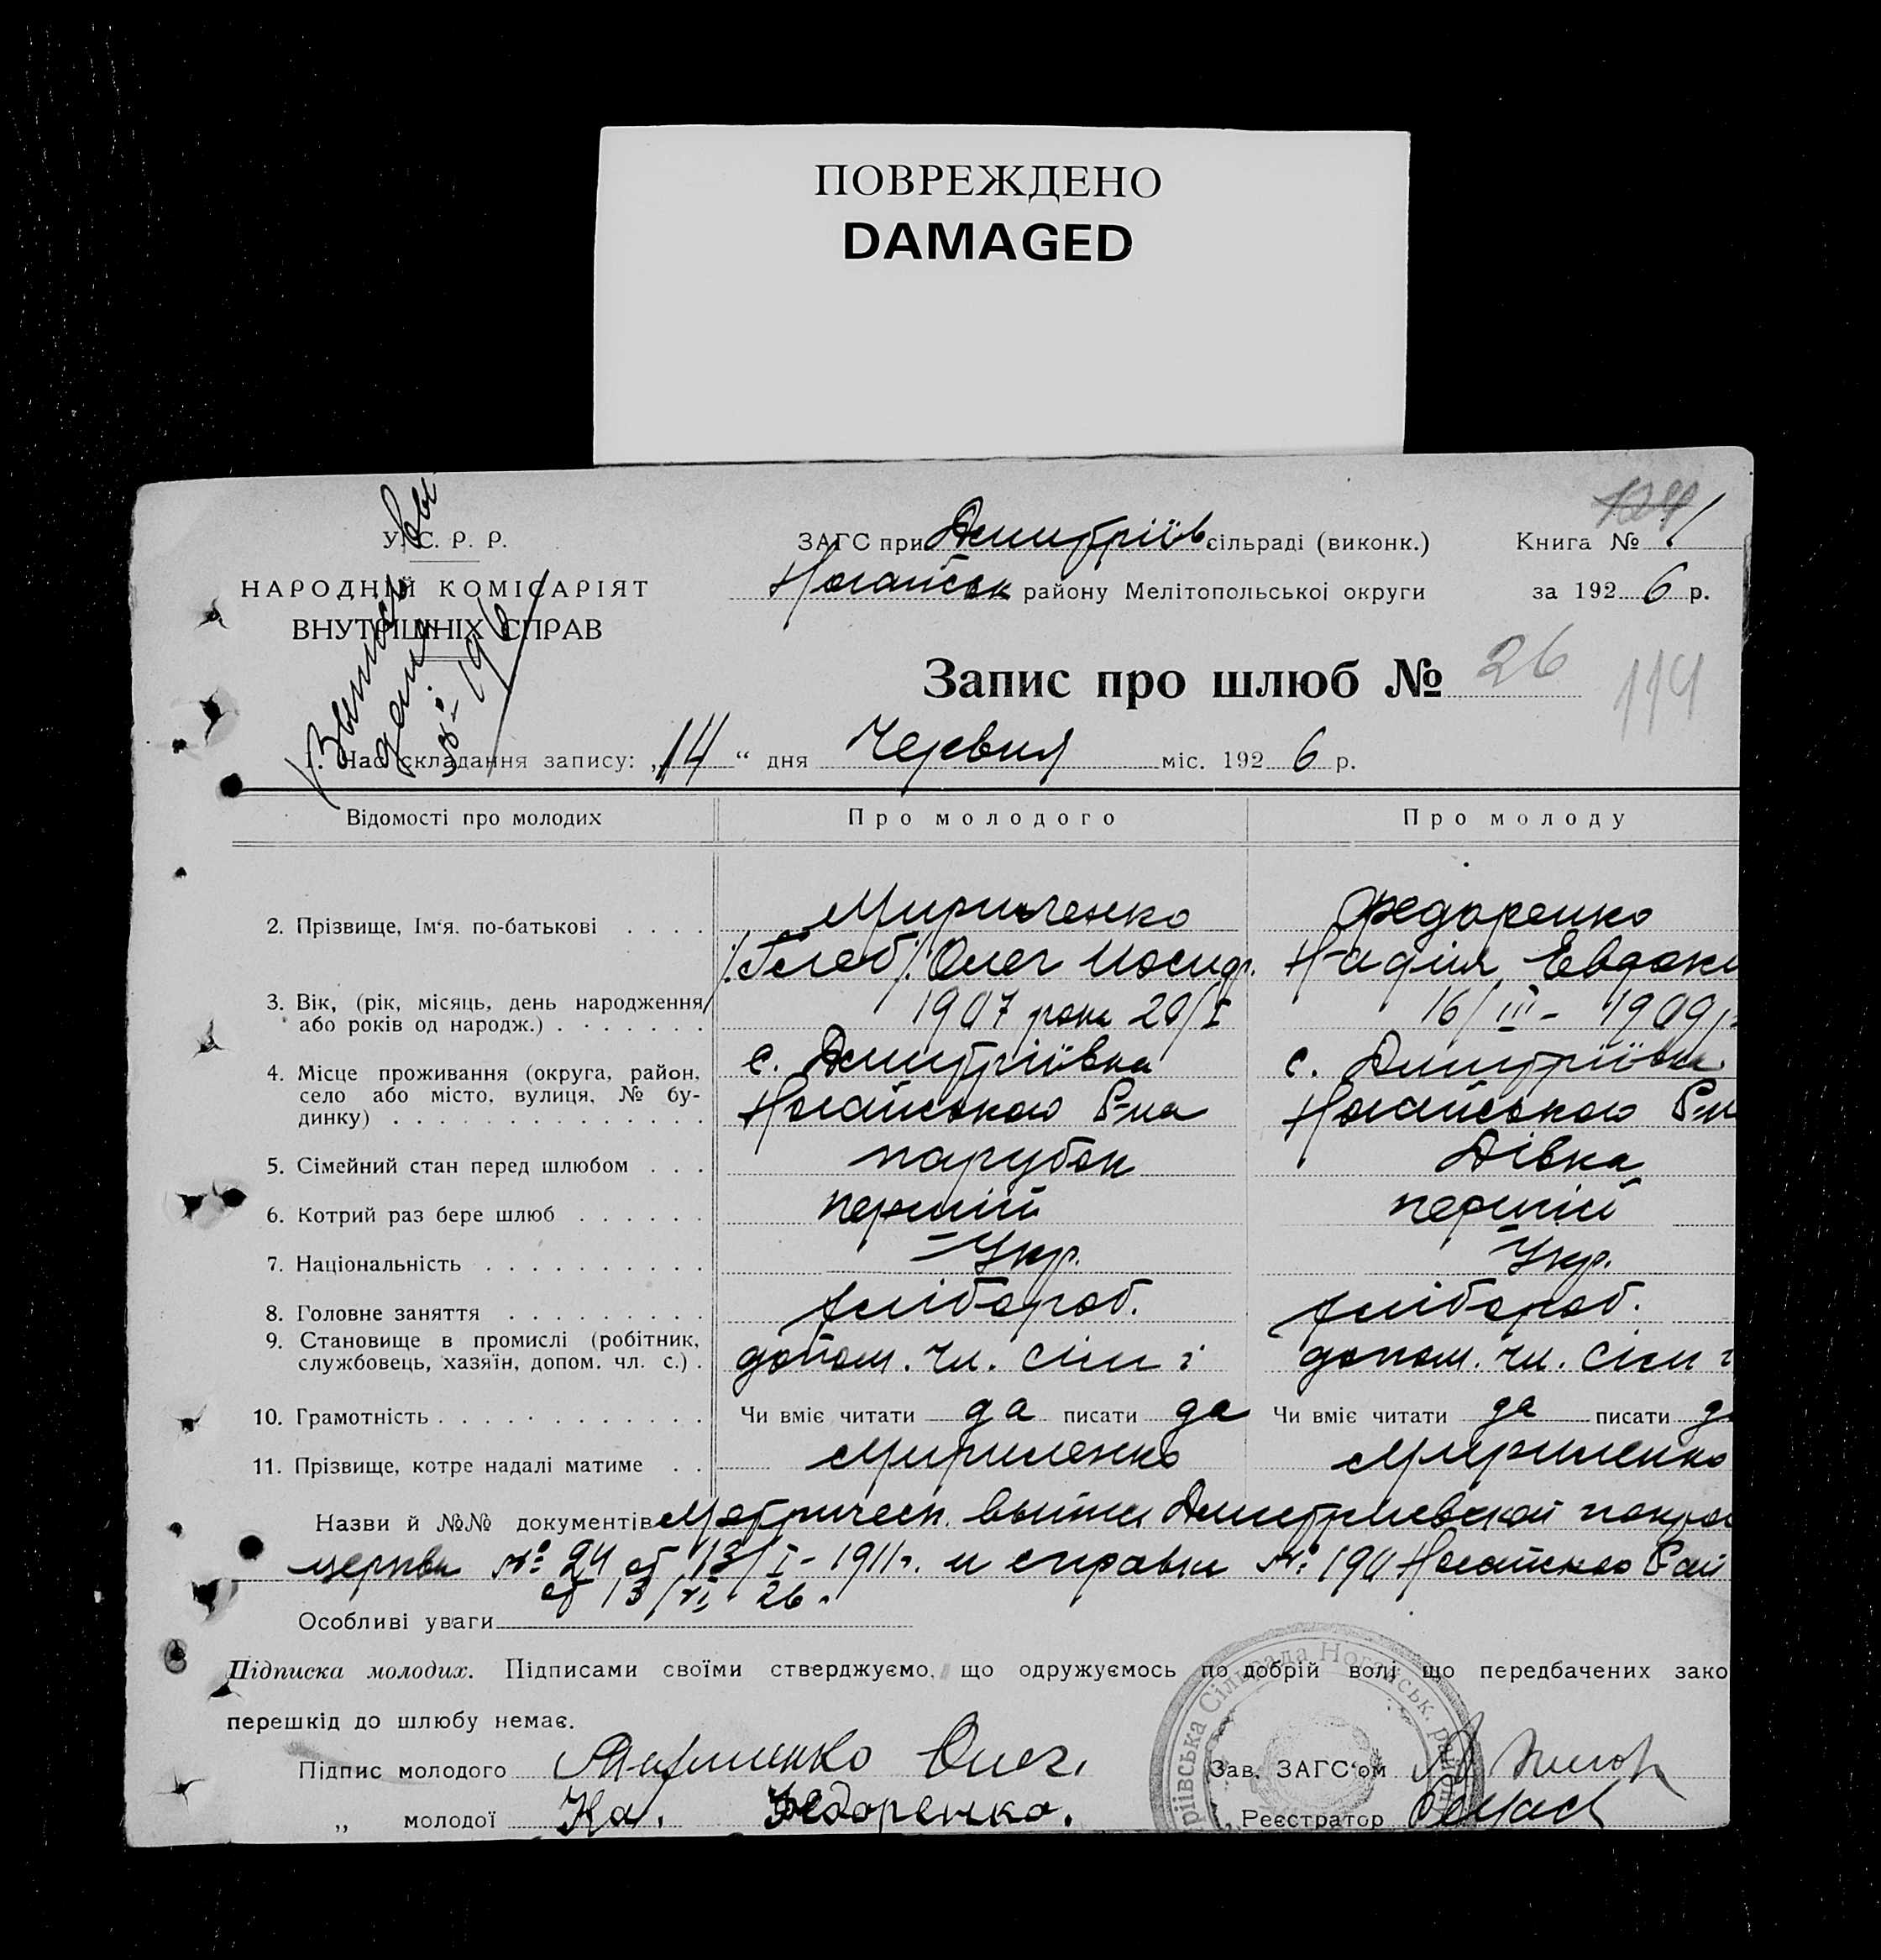 ПОВРЕЖДЕНО
DAMAGED
У. С. Р. Р.
НАРОДНІЙ КОМІСАРІЯТ
ВНУТРІШНІХ СПРАВ
ЗАГС при Дмитріїв. сільраді (виконк.)
Ногайськ району Мелітопольської округи
Книга № 1
за 1926 р.
Запис про шлюб № 26
114
1. Час складання запису: „14“ дня Червня міс. 1926 р.
Відомості про молодих Про молодого Про молоду
2. Прізвище, Ім'я. по-батькові . . . . Мириленко Федоренко
/Глеб/ Олег Иосиф. Надія Евдоки
3. Вік, (рік, місяць, день народження/ 1907 року 20/I 16/III - 1909 р.
або років од народж.) . . . . . . .
4. Місце проживання (округа, район, с. Дмитріївка с. Дмитріївка
село або місто, вулиця, № бу- Ногайського Р-на Ногайського Р-н
динку) . . . . . . . . . . . . . .
5. Сімейний стан перед шлюбом . . . парубок Дівка
6. Котрий раз бере шлюб . . . . . . перший перший
7. Національність . . . . . . . . . . Укр. Укр.
8. Головне заняття . . . . . . . . . хлібороб. хлібороб.
9. Становище в промислі (робітник, допом. чл. сім'ї допом. чл. сім'ї
службовець, хазяїн, допом. чл. с.) .
10. Грамотність . . . . . . . . . . . . Чи вміє читати да писати да Чи вміє читати да писати да
11. Прізвище, котре надалі матиме . . Мириленко Мириленко
Назви й №№ документів Метрическ. выписи Дмитриевской покров
церкви № 24 от 13/I - 1911 г. и справки № 190 Ногайского Рай
от 13/VI 26 г.
Особливі уваги
Підписка молодих. Підписами своїми стверджуємо, що одружуємось по добрій волі що передбачених зако
перешкід до шлюбу немає.
Підпис молодого Мириленко Олег. Зав. ЗАГС'ом
„ молодої На. Федоренко. Реєстратор
ріївська Сільрада Ногайськ. району